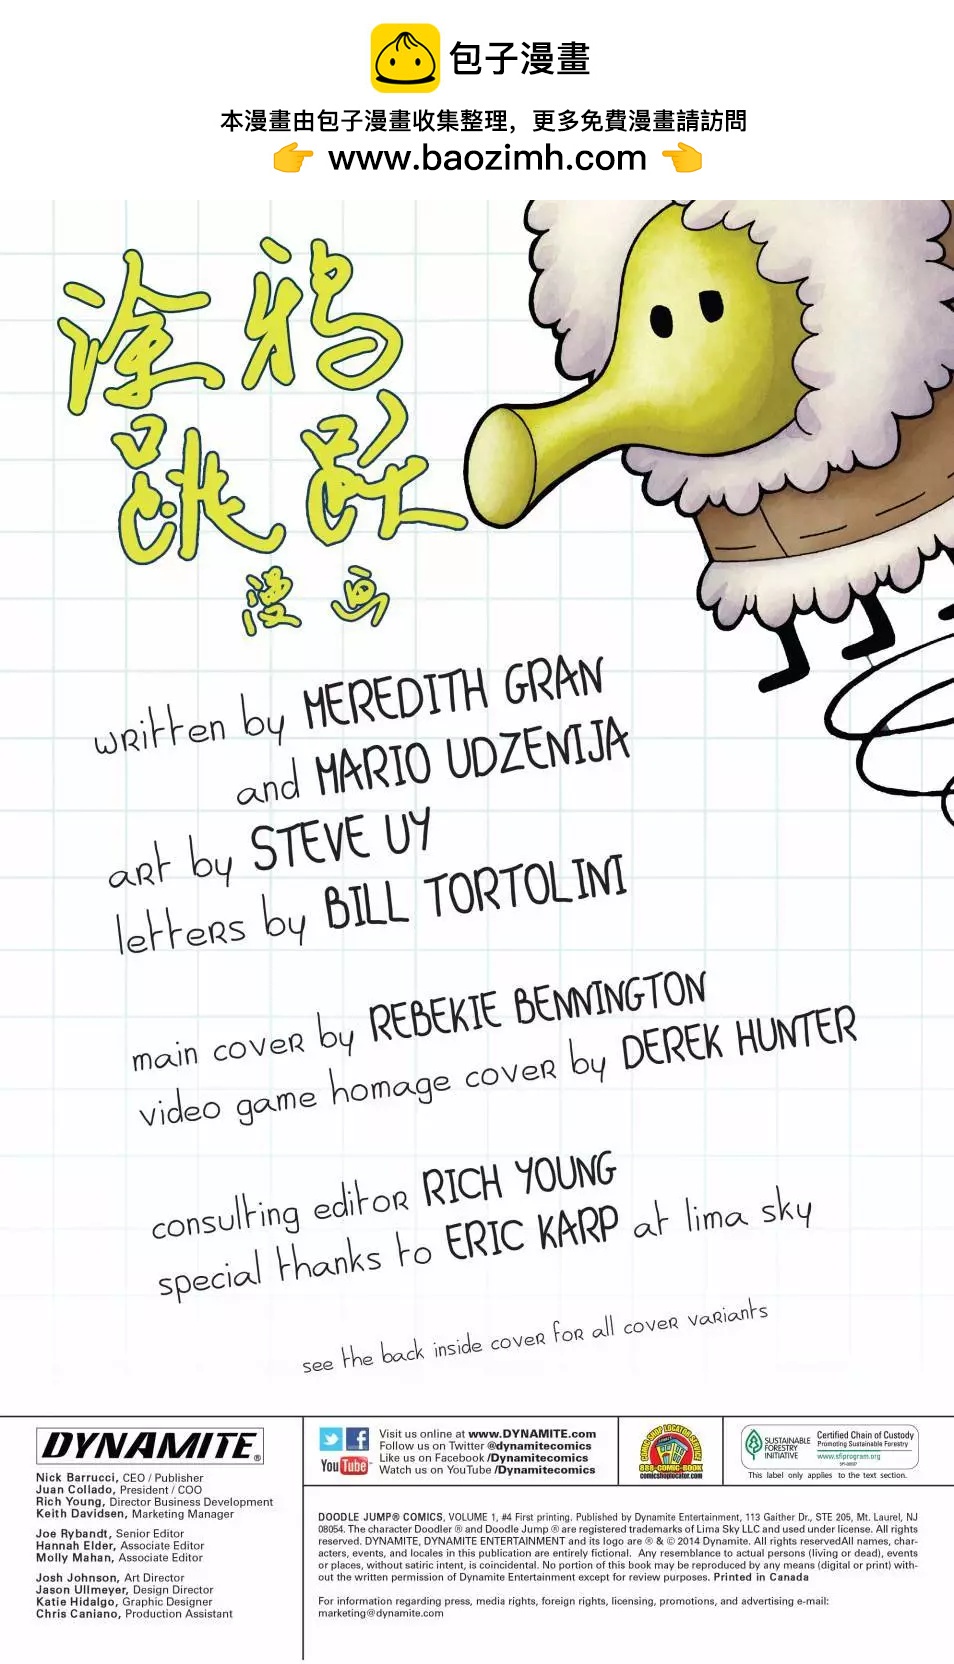 包子漫畫
本漫畫由包子漫畫收集整理，更多免費漫畫請訪問
www.baozimh.com
涂鸦
跳跃
漫画
written by MEREDITH GRAN
and MARIO UDZENIJA
art by STEVE UY
letters by BILL TORTOLINI
main cover by REBEKIE BENNINGTON
video game homage cover by DEREK HUNTER
consulting editor RICH YOUNG
special thanks to ERIC KARP at lima sky
see the back inside cover for all cover variants
DYNAMITE®
Nick Barrucci, CEO / Publisher
Juan Collado, President / COO
Rich Young, Director Business Development
Keith Davidsen, Marketing Manager
Joe Rybandt, Senior Editor
Hannah Elder, Associate Editor
Molly Mahan, Associate Editor
Josh Johnson, Art Director
Jason Ullmeyer, Design Director
Katie Hidalgo, Graphic Designer
Chris Caniano, Production Assistant
You Tube
Visit us online at www.DYNAMITE.com
Follow us on Twitter @dynamitecomics
Like us on Facebook /Dynamitecomics
Watch us on YouTube /Dynamitecomics
COMIC SHOP LOCATOR SERVICE
888-COMIC-BOOK
comicshoplocator.com
SUSTAINABLE
FORESTRY
INITIATIVE
Certified Chain of Custody
Promoting Sustainable Forestry
www.sfiprogram.org
This label only applies to the text section.
DOODLE JUMP® COMICS, VOLUME 1, #4 First printing. Published by Dynamite Entertainment, 113 Gaither Dr., STE 205, Mt. Laurel, NJ
08054. The character Doodler ® and Doodle Jump ® are registered trademarks of Lima Sky LLC and used under license. All rights
reserved. DYNAMITE, DYNAMITE ENTERTAINMENT and its logo are ® & © 2014 Dynamite. All rights reservedAll names, char-
acters, events, and locales in this publication are entirely fictional. Any resemblance to actual persons (living or dead), events
or places, without satiric intent, is coincidental. No portion of this book may be reproduced by any means (digital or print) with-
out the written permission of Dynamite Entertainment except for review purposes. Printed in Canada
For information regarding press, media rights, foreign rights, licensing, promotions, and advertising e-mail:
marketing@dynamite.com